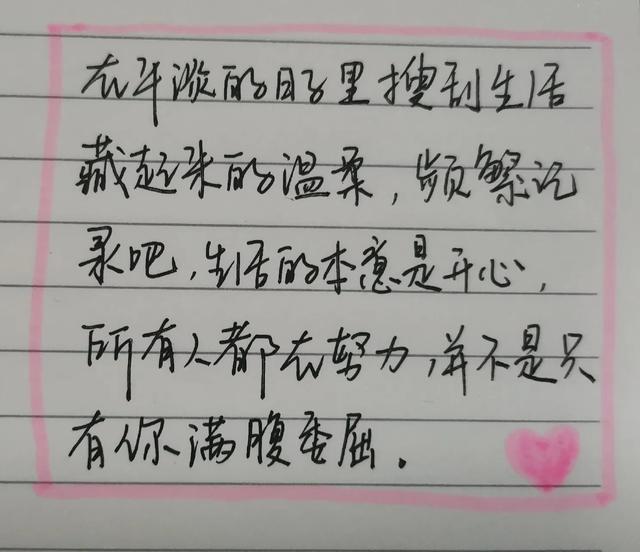 在平淡的日子里搜刮生活
藏起来的温柔,频繁记
录吧,生活的本意是开心,
所有人都在努力,并不是只
有你满腹委屈.